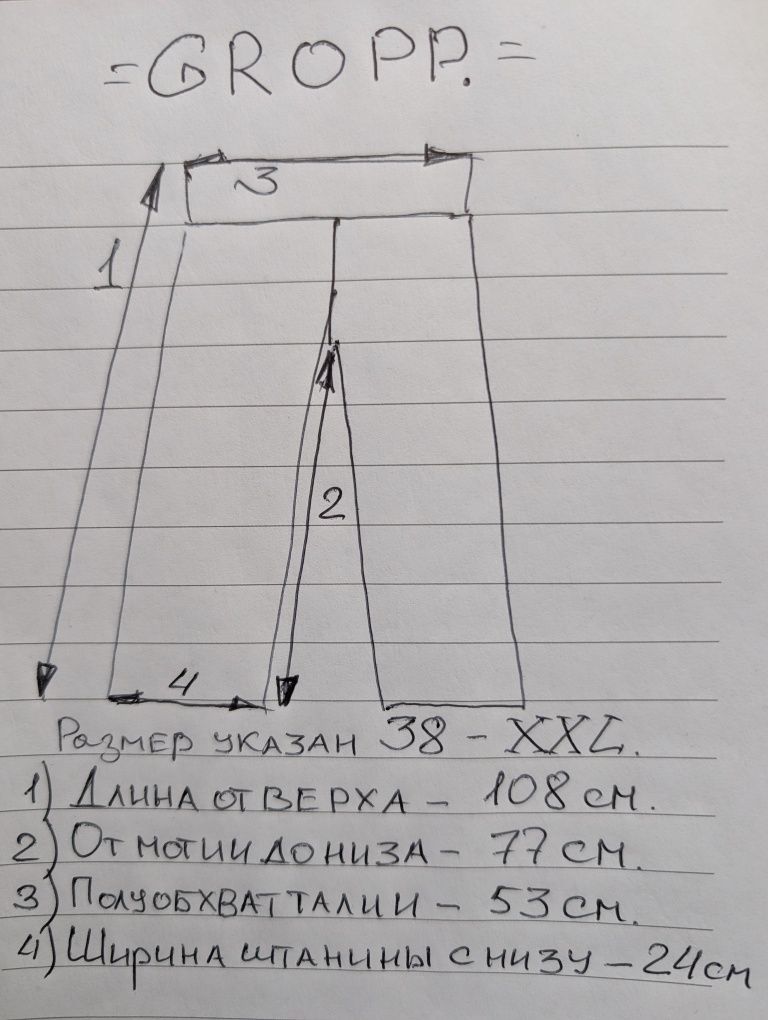 = GROPP. =
3
1
2
4
Размер указан 38 - XXL.
1) Длина от верха - 108 см.
2) От мотни до низа - 77 см.
3) Полуобхват талии - 53 см.
4) Ширина штанины снизу - 24 см